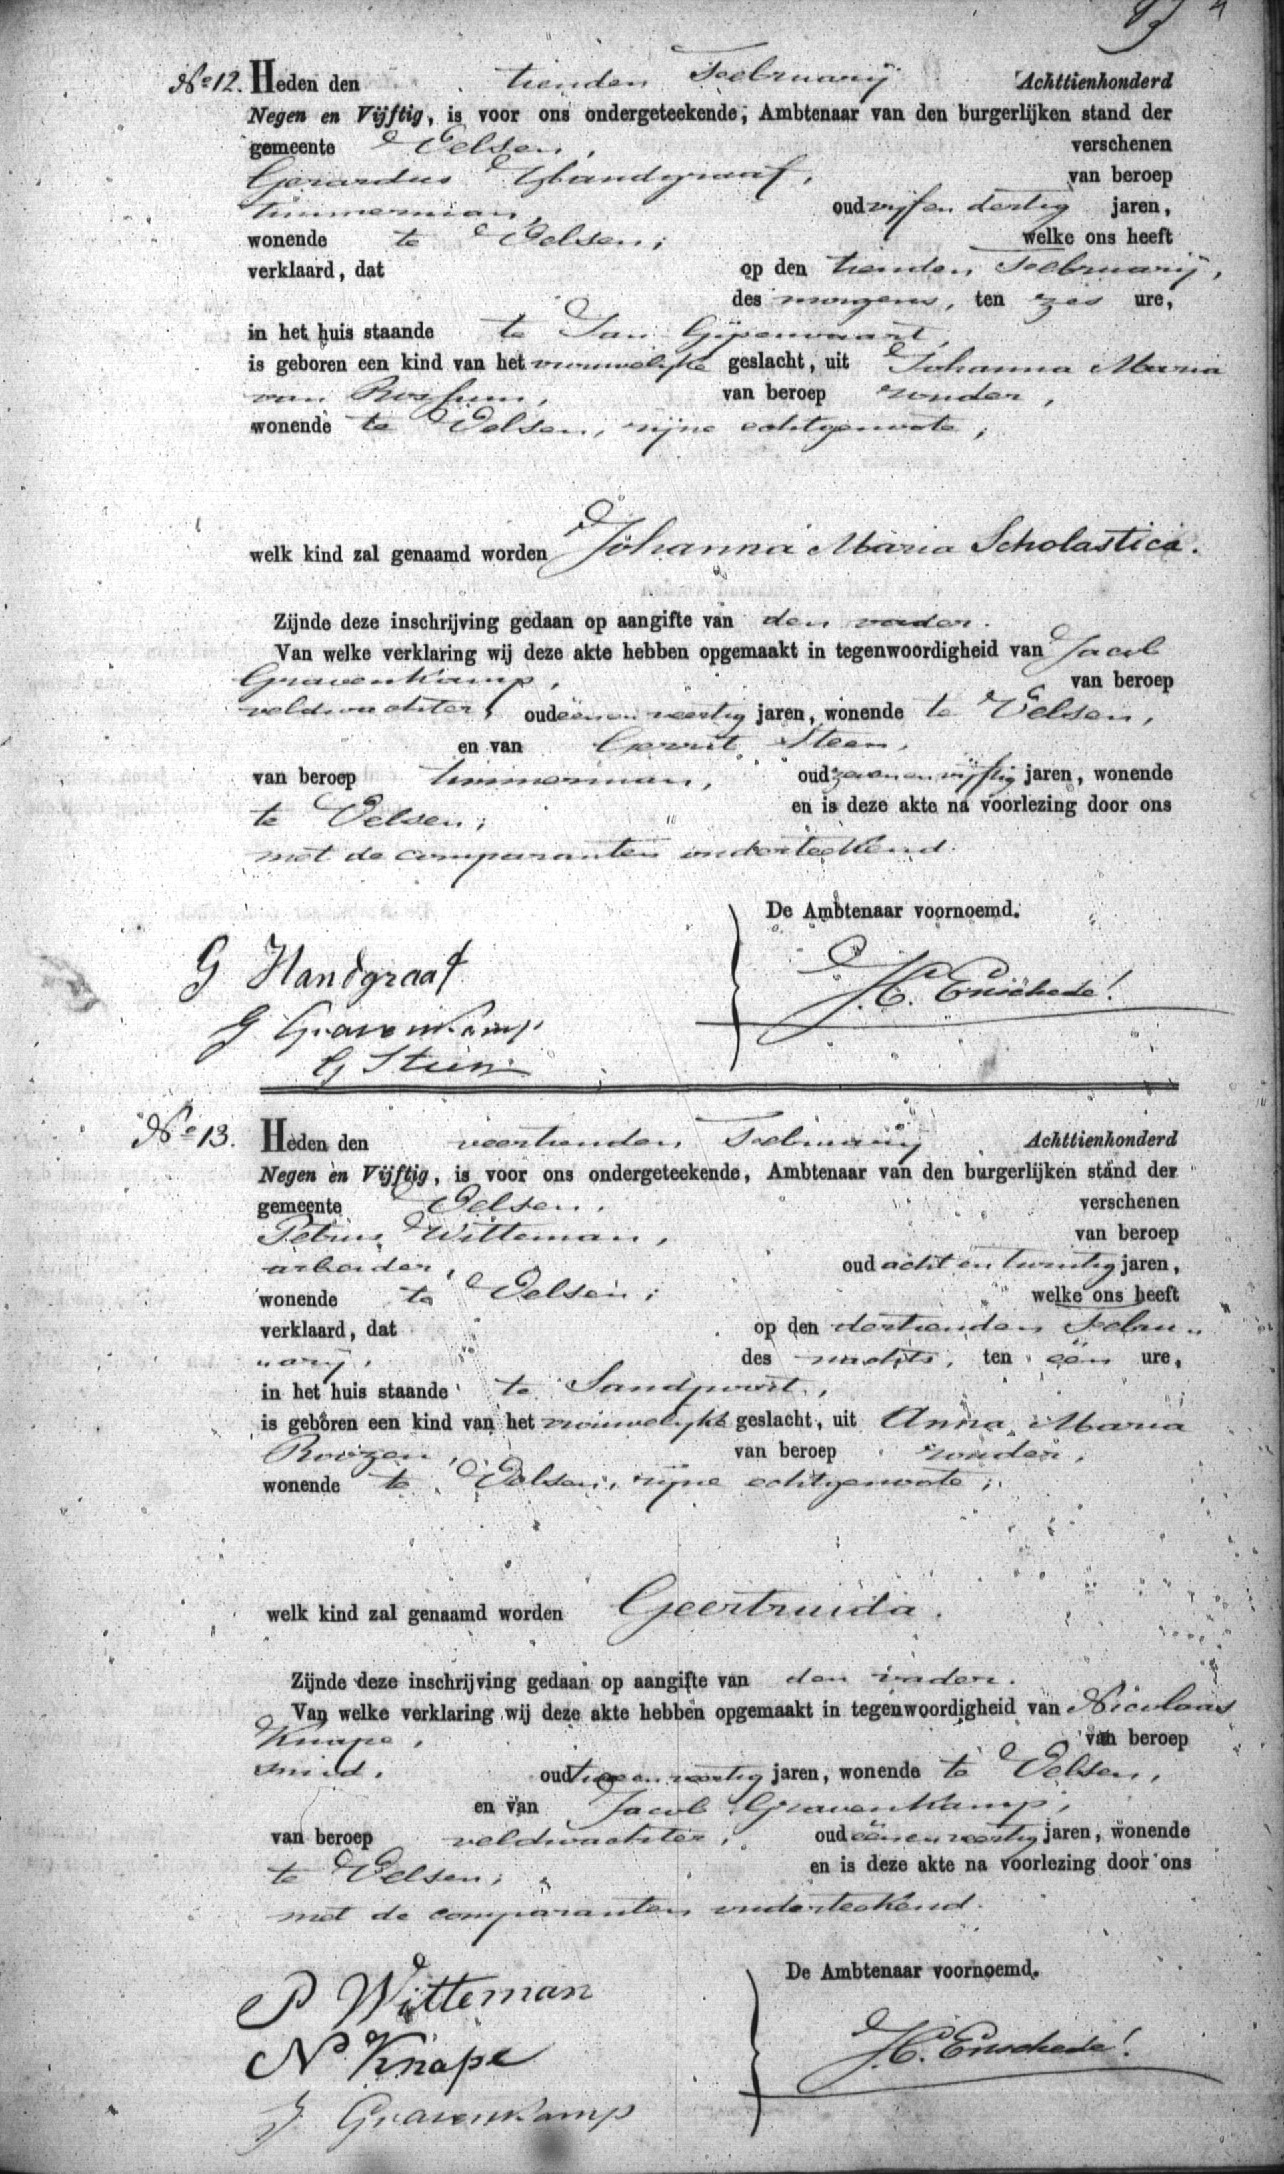 No 12. Heden den tienden Februarij Achttienhonderd
Negen en Vijftig, is voor ons ondergeteekende, Ambtenaar van den burgerlijken stand der
gemeente Velsen, verschenen
Gerardus Handgraaf, van beroep
timmerman, oud vijf en dertig jaren,
wonende te Velsen; welke ons heeft
verklaard, dat op den tienden Februarij,
des morgens, ten zes ure,
in het huis staande te Jan Gijzenvaart,
is geboren een kind van het vrouwelijke geslacht, uit Johanna Maria
van beroep zonder,
wonende te Velsen, zijne echtgenoote;
welk kind zal genaamd worden Johanna Maria Scholastica.
Zijnde deze inschrijving gedaan op aangifte van den vader.
Van welke verklaring wij deze akte hebben opgemaakt in tegenwoordigheid van Jacob
Gravenkamp, van beroep
veldwachter, oud eenen veertig jaren, wonende te Velsen,
en van Gerrit Steen,
van beroep timmerman, oud zeven en vijftig jaren, wonende
te Velsen; en is deze akte na voorlezing door ons
met de comparanten onderteekend.
De Ambtenaar voornoemd.
G Handgraaf
J.C. Enschedé!
J Gravenkamp
G Steen
No 13. Heden den veertienden Februarij Achttienhonderd
Negen en Vijftig, is voor ons ondergeteekende, Ambtenaar van den burgerlijken stand der
gemeente Velsen, verschenen
Petrus Witteman, van beroep
arbeider, oud acht en twintig jaren,
wonende te Velsen; welke ons heeft
verklaard, dat op den dertienden Febru„
„arij, des nachts, ten één ure,
in het huis staande te Sandpoort,
is geboren een kind van het vrouwelijke geslacht, uit Anna Maria
Roozen, van beroep zonder,
wonende te Velsen, zijne echtgenoote;
welk kind zal genaamd worden Geertruida.
Zijnde deze inschrijving gedaan op aangifte van den vader.
Van welke verklaring wij deze akte hebben opgemaakt in tegenwoordigheid van Nicolaas
Knape, van beroep
smid, oud twee en veertig jaren, wonende te Velsen,
en van Jacob Gravenkamp,
van beroep veldwachter, oud eenen veertig jaren, wonende
te Velsen; en is deze akte na voorlezing door ons
met de comparanten onderteekend.
De Ambtenaar voornoemd.
P Witteman
N Knape
J.C. Enschedé!
J Gravenkamp